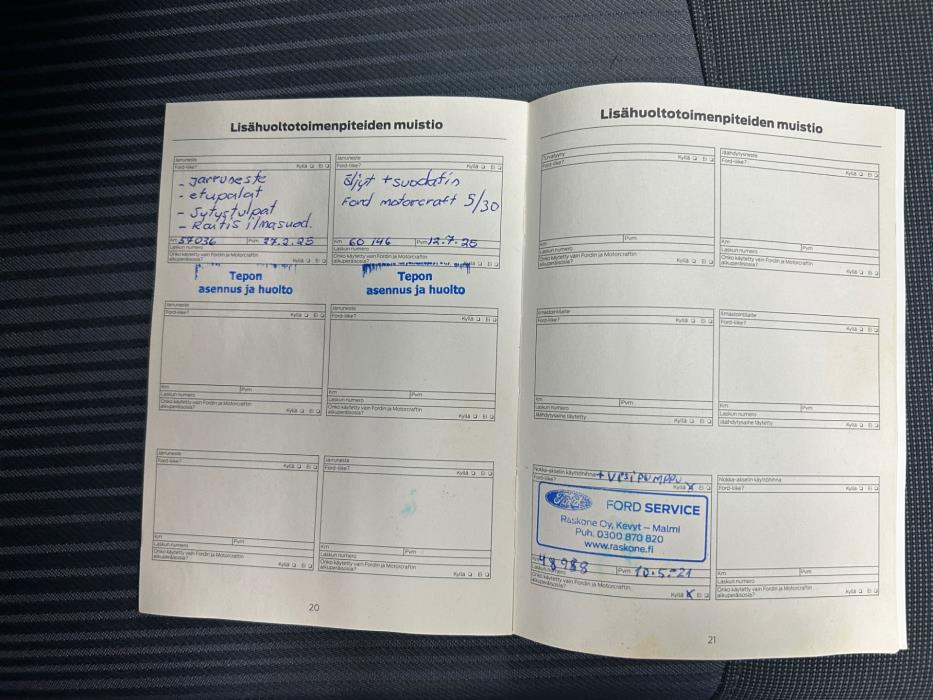 Lisähuoltotoimenpiteiden muistio
Jarruneste
Ford-liike? Kyllä Ei
- jarruneste
- etupalat
- Sytystulpat
- Raitis ilmasuod.
Km 57036 Pvm 27.2.25
Laskun numero
Onko käytetty vain Fordin ja Motorcraftin
alkuperäisosia? Kyllä Ei
Tepon
asennus ja huolto
Jarruneste
Ford-liike? Kyllä Ei
öljyt + suodatin
Ford motorcraft 5/30
Km 60 146 Pvm 12.7.25
Laskun numero
Onko käytetty vain Fordin ja Motorcraftin
alkuperäisosia? Kyllä Ei
Tepon
asennus ja huolto
Jarruneste
Ford-liike? Kyllä Ei
Km Pvm
Laskun numero
Onko käytetty vain Fordin ja Motorcraftin
alkuperäisosia? Kyllä Ei
Jarruneste
Ford-liike? Kyllä Ei
Km Pvm
Laskun numero
Onko käytetty vain Fordin ja Motorcraftin
alkuperäisosia? Kyllä Ei
Jarruneste
Ford-liike? Kyllä Ei
Km Pvm
Laskun numero
Onko käytetty vain Fordin ja Motorcraftin
alkuperäisosia? Kyllä Ei
Jarruneste
Ford-liike? Kyllä Ei
Km Pvm
Laskun numero
Onko käytetty vain Fordin ja Motorcraftin
alkuperäisosia? Kyllä Ei
20
Lisähuoltotoimenpiteiden muistio
Turvatyyny
Ford-liike? Kyllä Ei
Km Pvm
Laskun numero
Onko käytetty vain Fordin ja Motorcraftin
alkuperäisosia? Kyllä Ei
Jäähdytysneste
Ford-liike? Kyllä Ei
Km Pvm
Laskun numero
Onko käytetty vain Fordin ja Motorcraftin
alkuperäisosia? Kyllä Ei
Ilmastointilaite
Ford-liike? Kyllä Ei
Km Pvm
Laskun numero
Jäähdytysaine täytetty Kyllä Ei
Ilmastointilaite
Ford-liike? Kyllä Ei
Km Pvm
Laskun numero
Jäähdytysaine täytetty Kyllä Ei
Nokka-akselin käyttöhihna + vesipumppu
Ford-liike? Kyllä X Ei
Ford FORD SERVICE
Raskone Oy, Kevyt – Malmi
Puh. 0300 870 820
www.raskone.fi
48988 Pvm 10.5.-21
Laskun numero
Onko käytetty vain Fordin ja Motorcraftin
alkuperäisosia? Kyllä X Ei
Nokka-akselin käyttöhihna
Ford-liike? Kyllä Ei
Km Pvm
Laskun numero
Onko käytetty vain Fordin ja Motorcraftin
alkuperäisosia? Kyllä Ei
21